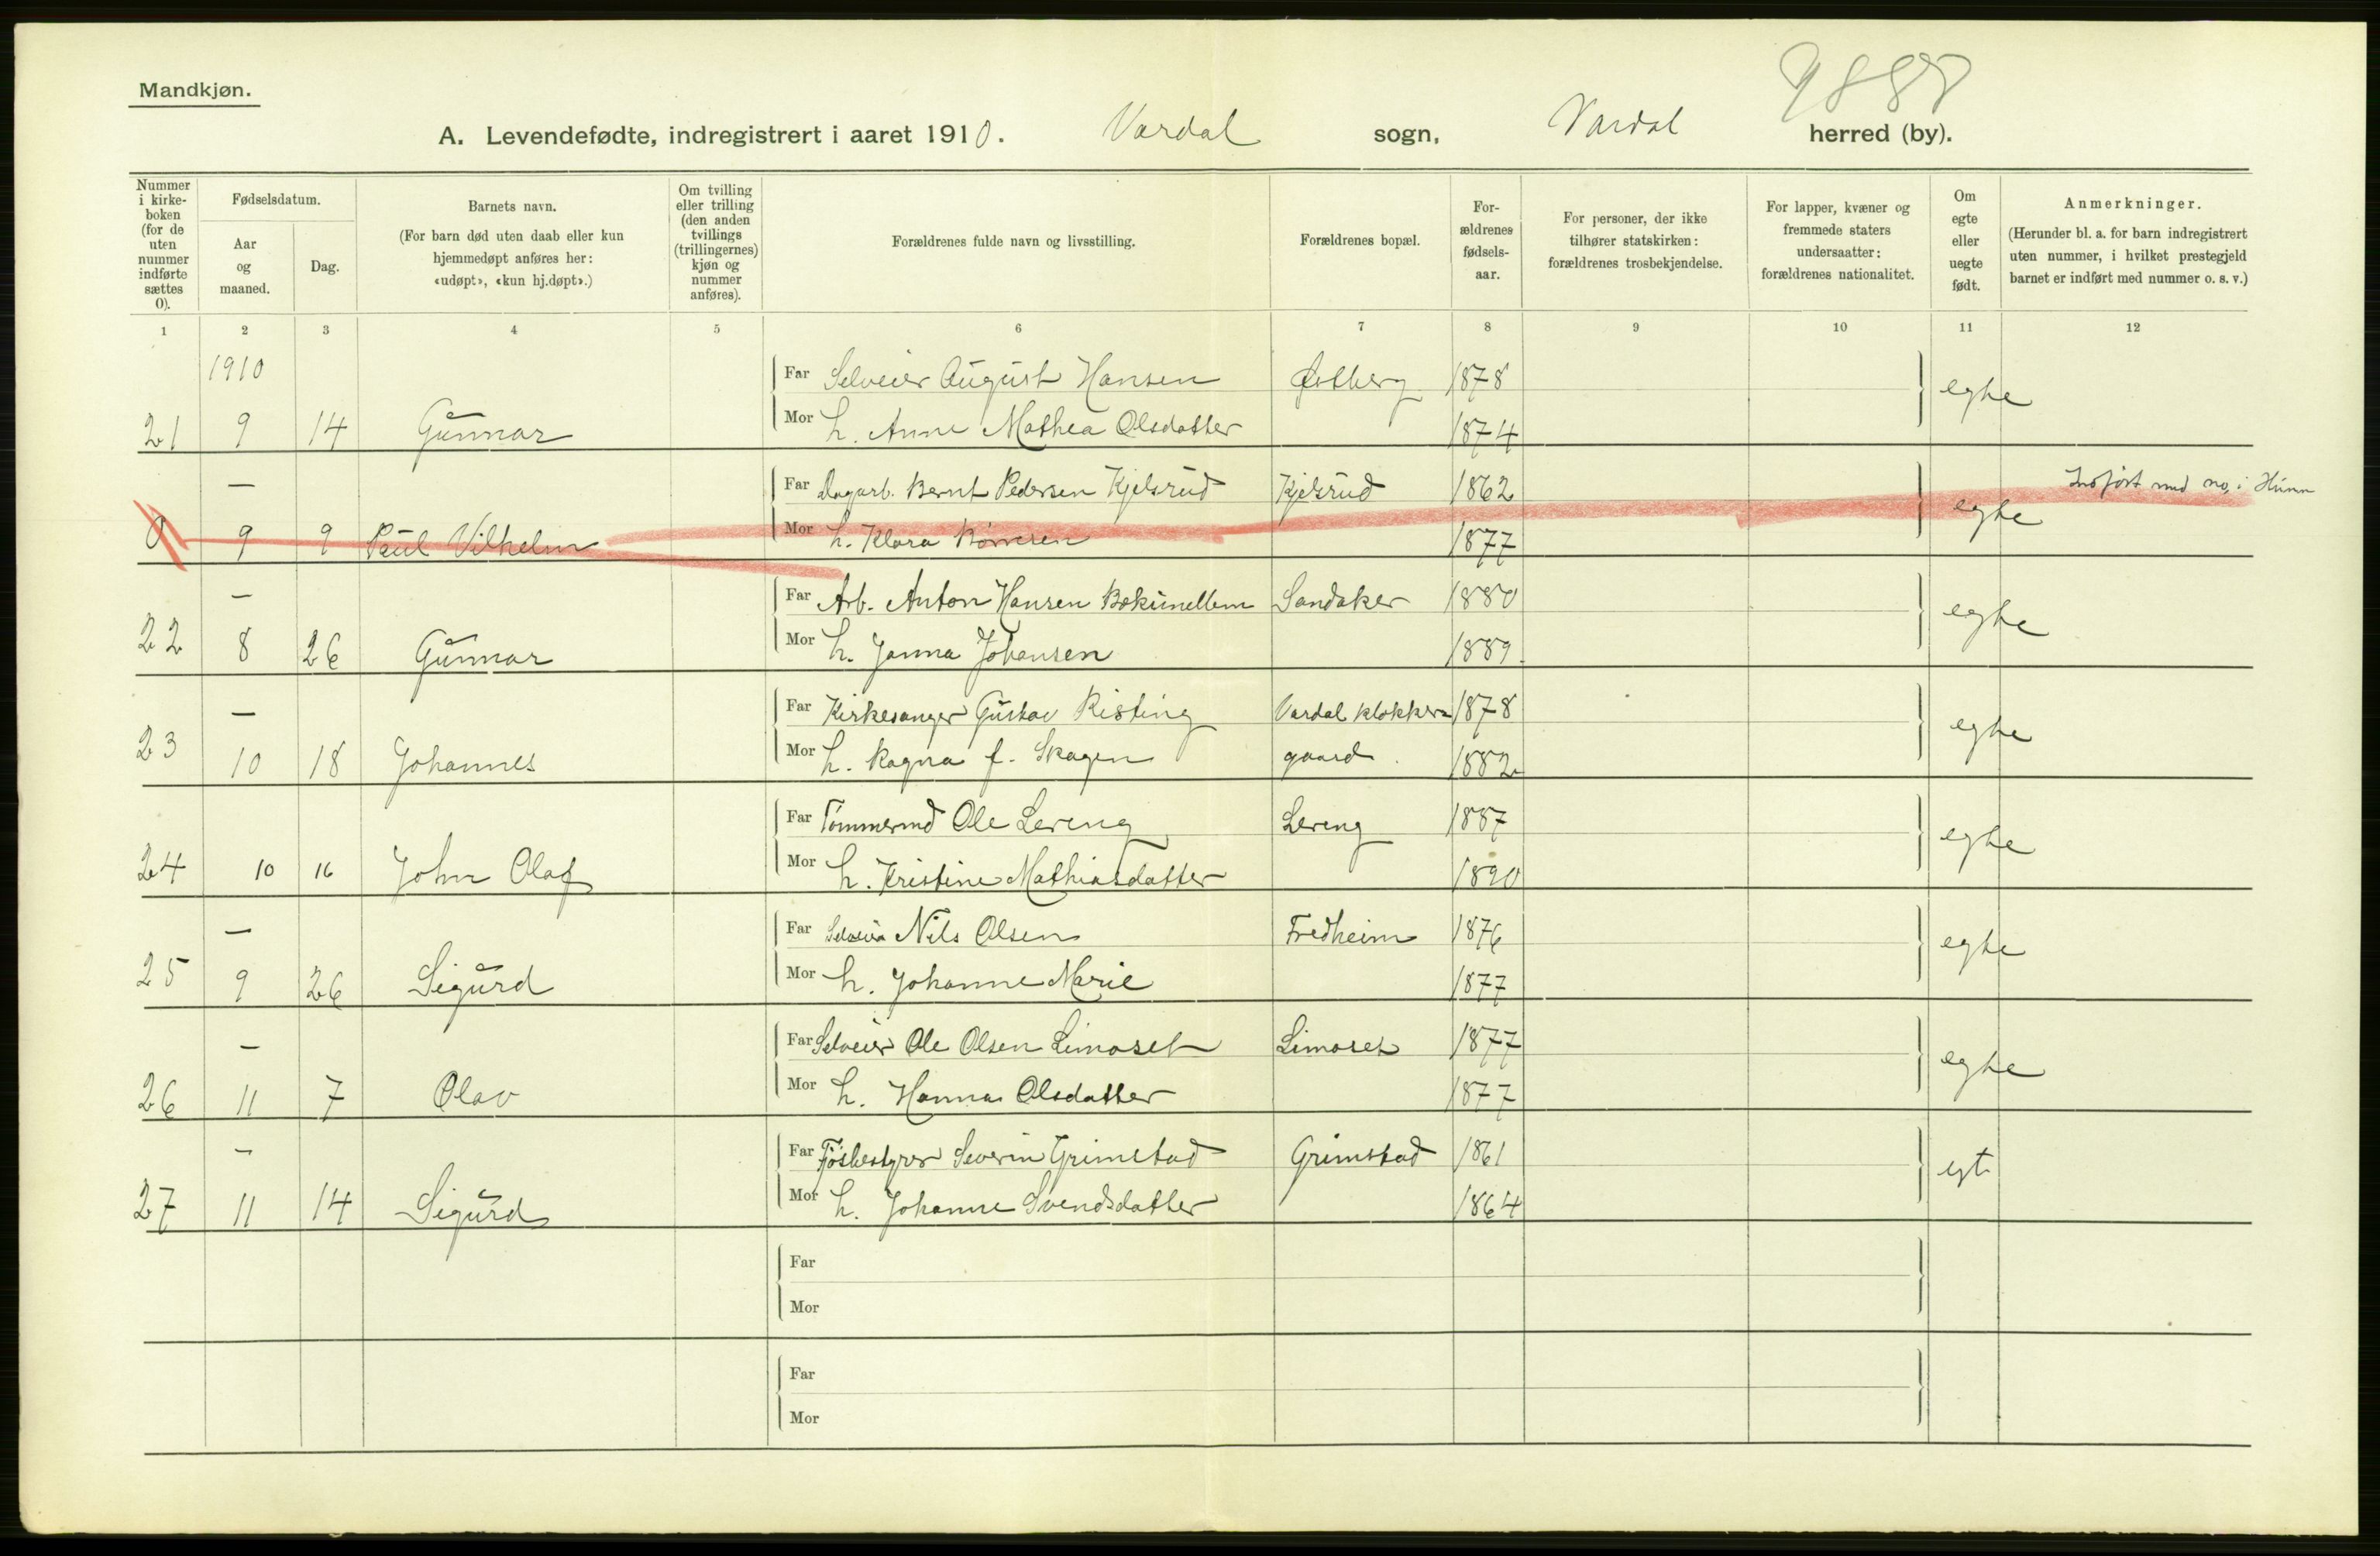 9888
Mandkjøn.
A. Levendefødte, indregistrert i aaret 1910. Vardal sogn, Vardal herred (by).
Nummer i kirke-boken (for de uten nummer indførte sættes 0).
Fødselsdatum.
Aar og maaned.
Dag.
Barnets navn.
(For barn død uten daab eller kun hjemmedøpt anføres her: «udøpt», «kun hj.døpt».)
Om tvilling eller trilling (den anden tvillings (trillingernes) kjøn og nummer anføres).
Forældrenes fulde navn og livsstilling.
Forældrenes bopæl.
For-ældrenes fødsels-aar.
For personer, der ikke tilhører statskirken: forældrenes trosbekjendelse.
For lapper, kvæner og fremmede staters undersaatter: forældrenes nationalitet.
Om egte eller uegte født.
Anmerkninger.
(Herunder bl. a. for barn indregistrert uten nummer, i hvilket prestegjeld barnet er indført med nummer o. s. v.)
1 2 3 4 5 6 7 8 9 10 11 12
1910 Far Selveier August Hansen Østberg 1878 egte
21 9 14 Gunnar Mor h. Anne Mathea Olsdatter 1874
— Far Dagarb. Bernt Pedersen Kjelsrud Kjelsrud 1862 egte Indført med no. i Hunn
0 9 9 Paul Vilhelm Mor h. Klara 1877
— Far Arb. Anton Hansen Sandaker 1880 egte
22 8 26 Gunnar Mor h. Janna Johansen 1889
— Far Kirkesanger Gustav Risting Vardal klokker- 1878 egte
23 10 18 Johannes Mor h. Ragna f. Skagen gaard 1882
Far Tømmermd Ole Lereng Lereng 1887 egte
24 10 16 John Olaf Mor h. Kristine Mathiasdatter 1890
— Far Selveier Nils Olsen Fredheim 1876 egte
25 9 26 Sigurd Mor h. Johanne Marie 1877
— Far Selveier Ole Olsen Limoset Limoset 1877 egte
26 11 7 Olav Mor h. Hanna Olsdatter 1877
— Far Fjøsbestyrer Severin Grimstad Grimstad 1861 egte
27 11 14 Sigurd Mor h. Johanne Svendsdatter 1864
Far
Mor
Far
Mor